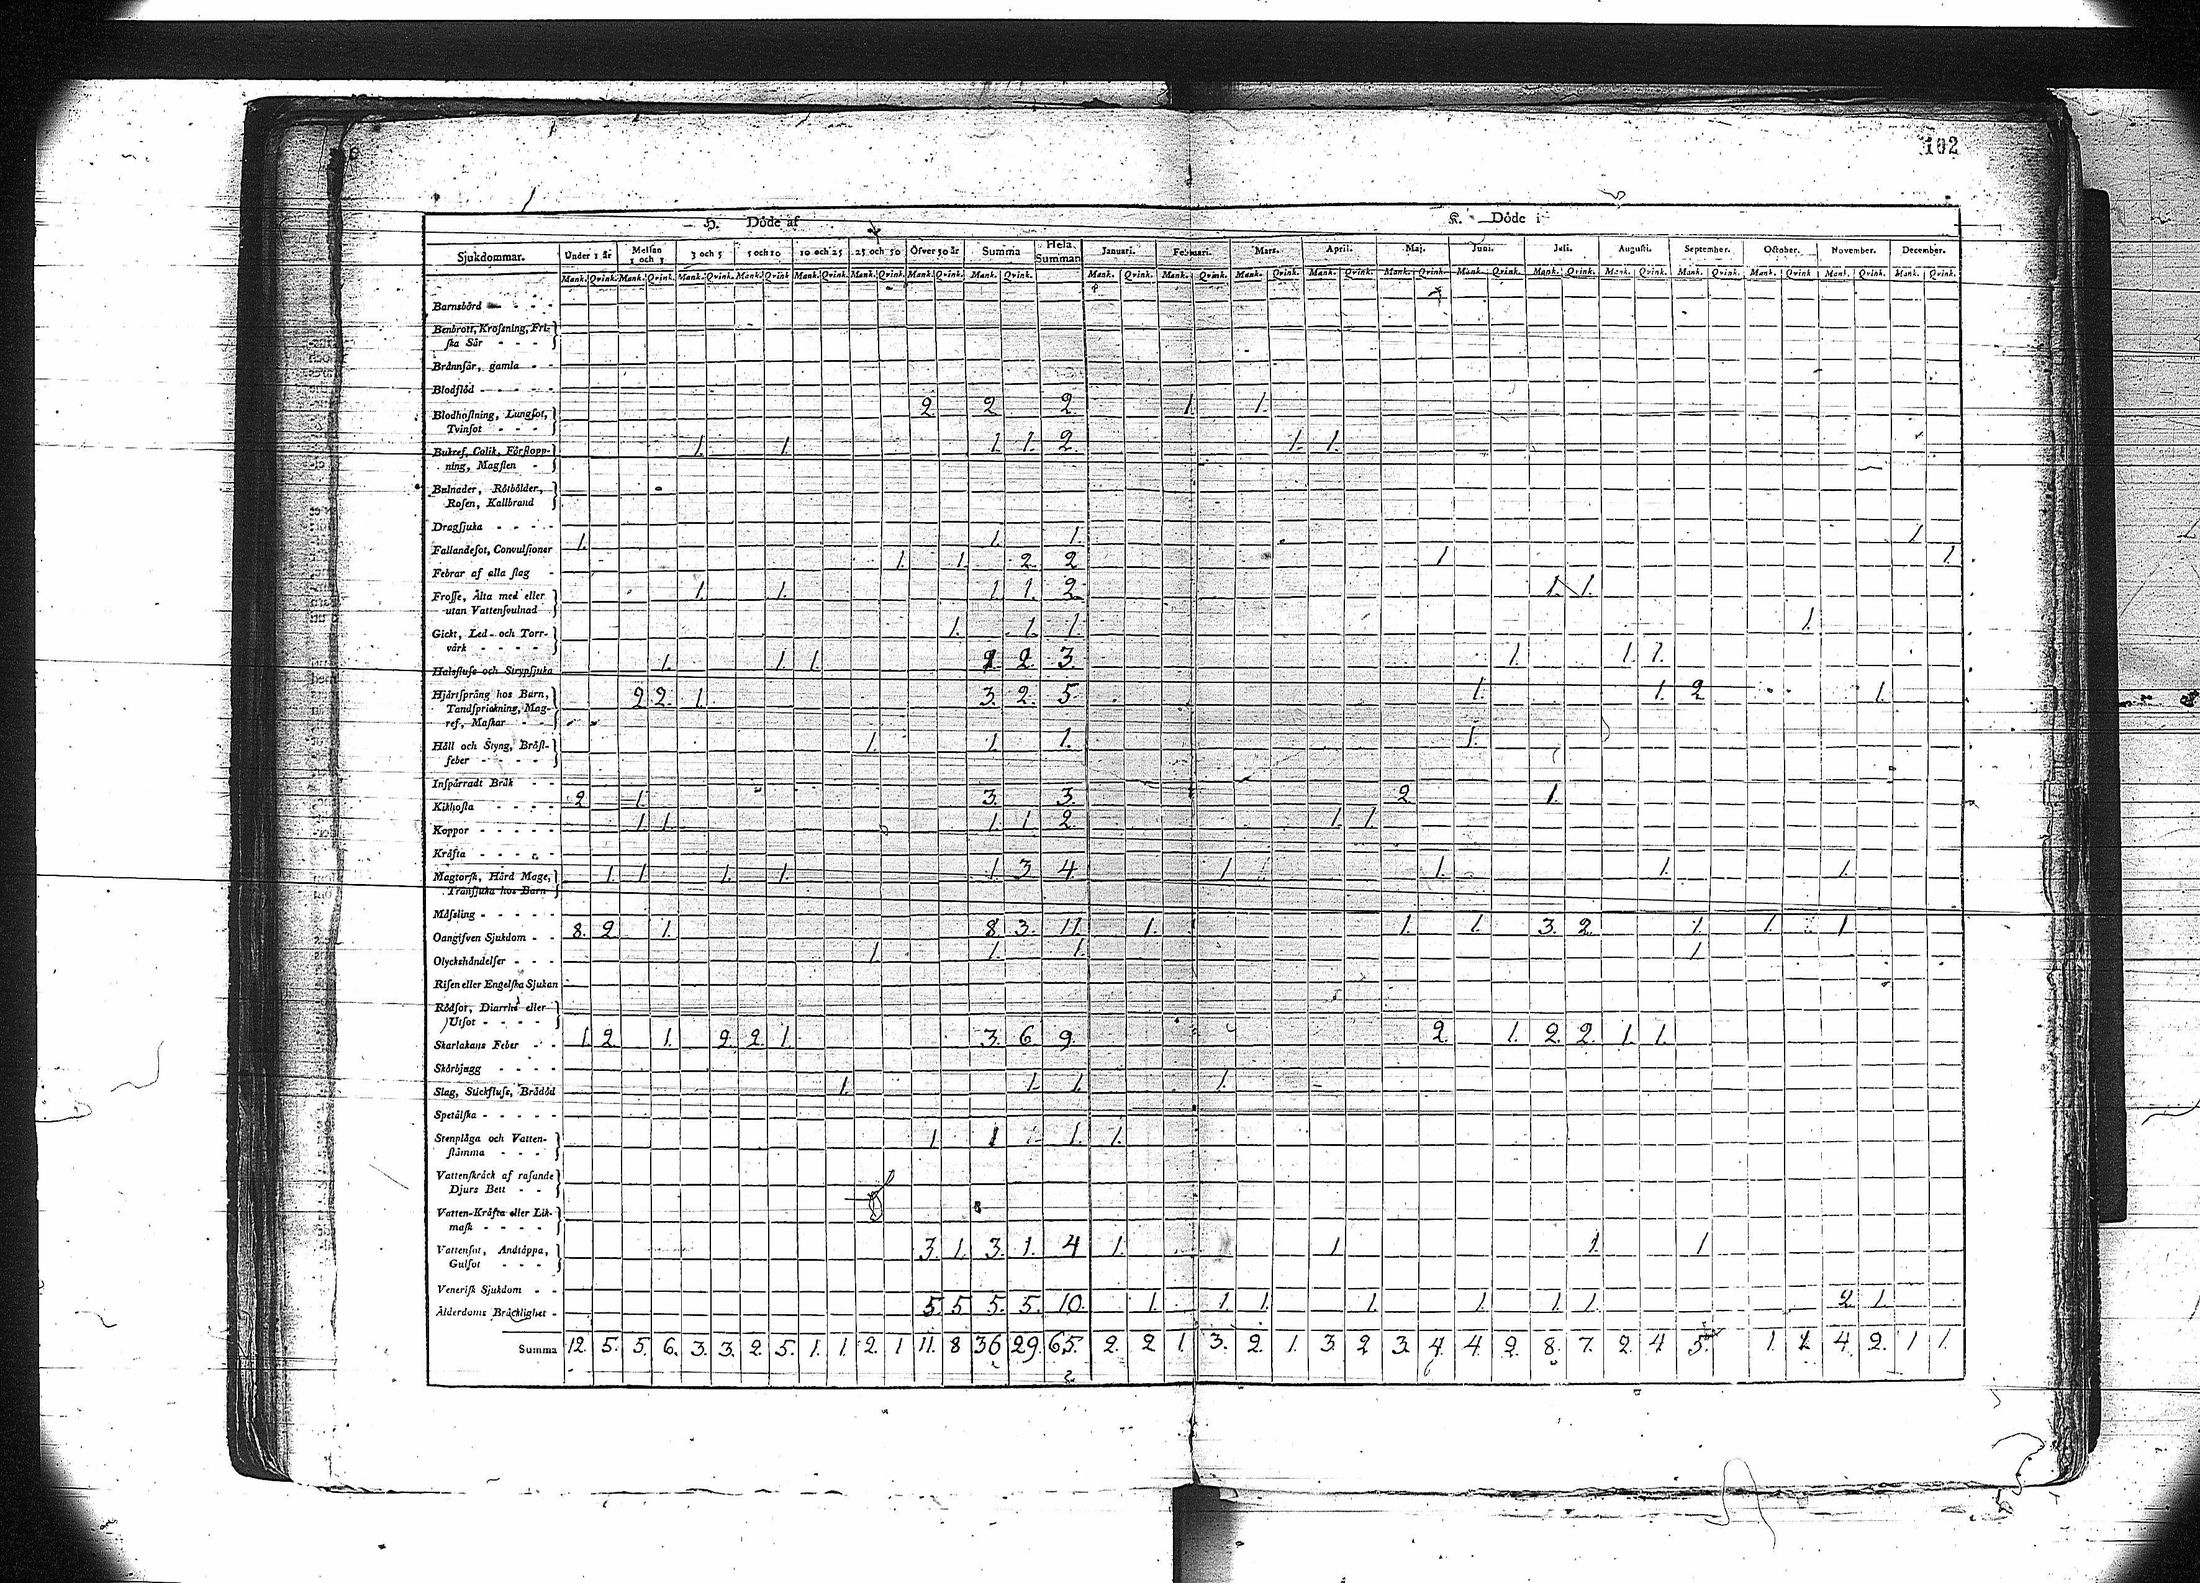 102
H. Döde af K. Döde i
Sjukdommar. Under 1 år Mellan 1 och 3 3 och 5 5 och 10 10 och 25 25 och 50 Öfver 50 år Summa Hela Summan Januari. Februari. Mars. April. Maj. Juni. Juli. Augusti. September. October. November. December.
Mank. Qvink. Mank. Qvink. Mank. Qvink. Mank. Qvink. Mank. Qvink. Mank. Qvink. Mank. Qvink. Mank. Qvink. Mank. Qvink. Mank. Qvink. Mank. Qvink. Mank. Qvink. Mank. Qvink. Mank. Qvink. Mank. Qvink. Mank. Qvink. Mank. Qvink. Mank. Qvink. Mank. Qvink. Mank. Qvink.
Barnsbörd
Benbrott, Krossning, Fri-
ska Sår
Brännsår, gamla
Blodflöd
Blodhostning, Lungsot, 2 2 2 1. 1.
Tvinsot
Bukref, Colik, Förstopp- 1. 1. 1. 1. 2. 1. 1.
ning, Magsten
Bulnader, Rötbölder,
Rosen, Kallbrand
Dragsjuka
Fallandesot, Convulsioner 1. 1. 1. 1.
Febrar af alla slag 1. 1. 2. 2 1 1.
Frosse, Älta med eller 1. 1. 1. 1. 2. 1. 1.
utan Vattensvulnad
Gickt, Led- och Torr- 1. 1. 1. 1.
värk
Halsfluss och Strypsjuka 1. 1. 1. 2. 3. 1. 1. 1.
Hjärtsprång hos Barn, 2. 2. 1. 3. 2. 5. 1. 1. 2. 1.
Tandsprickning, Mag-
ref, Maskar
Håll och Styng, Bröst- 1. 1. 1. 1.
feber
Inspärradt Bråk
Kikhosta 2. 1. 3. 3. 2. 1.
Koppor 1. 1. 1. 1. 2. 1. 1.
Kräfta
Magtorsk, Hård Mage, 1. 1. 1. 1. 1. 3. 4. 1. 1. 1. 1.
Tränsjuka hos Barn
Mässling
Oangifven Sjukdom 8. 2. 1. 8. 3. 11. 1. 1. 1. 3. 2. 1. 1. 1
Olyckshändelser 1. 1. 1. 1
Risen eller Engelska Sjukan
Rödsot, Diarrhé eller
Utsot
Skarlakans Feber 1. 2. 1. 2. 2. 1. 3. 6. 9. 2. 1. 2. 2. 1. 1.
Skörbjugg
Slag, Stickfluss, Brådöd 1. 1. 1. 1.
Spetälska
Stenplåga och Vatten- 1. 1 1. 1.
stämma
Vattenskräck af rasande
Djurs Bett
Vatten-Kräfta eller Lik-
mask
Vattensot, Andtäppa, 3. 1. 3. 1. 4 1. 1 1. 1
Gulsot
Venerisk Sjukdom
Ålderdoms Bräcklighet 5. 5 5. 5. 10. 1. 1. 1. 1. 1. 1. 1. 2 1.
Summa 12. 5. 5. 6. 3. 3. 2. 5. 1. 1. 2. 1 11. 8 36 29. 65. 2. 2 1. 3. 2. 1. 3. 2 3. 4. 4. 2. 8. 7. 2. 4 5. 1. 1. 4. 2. 1 1.